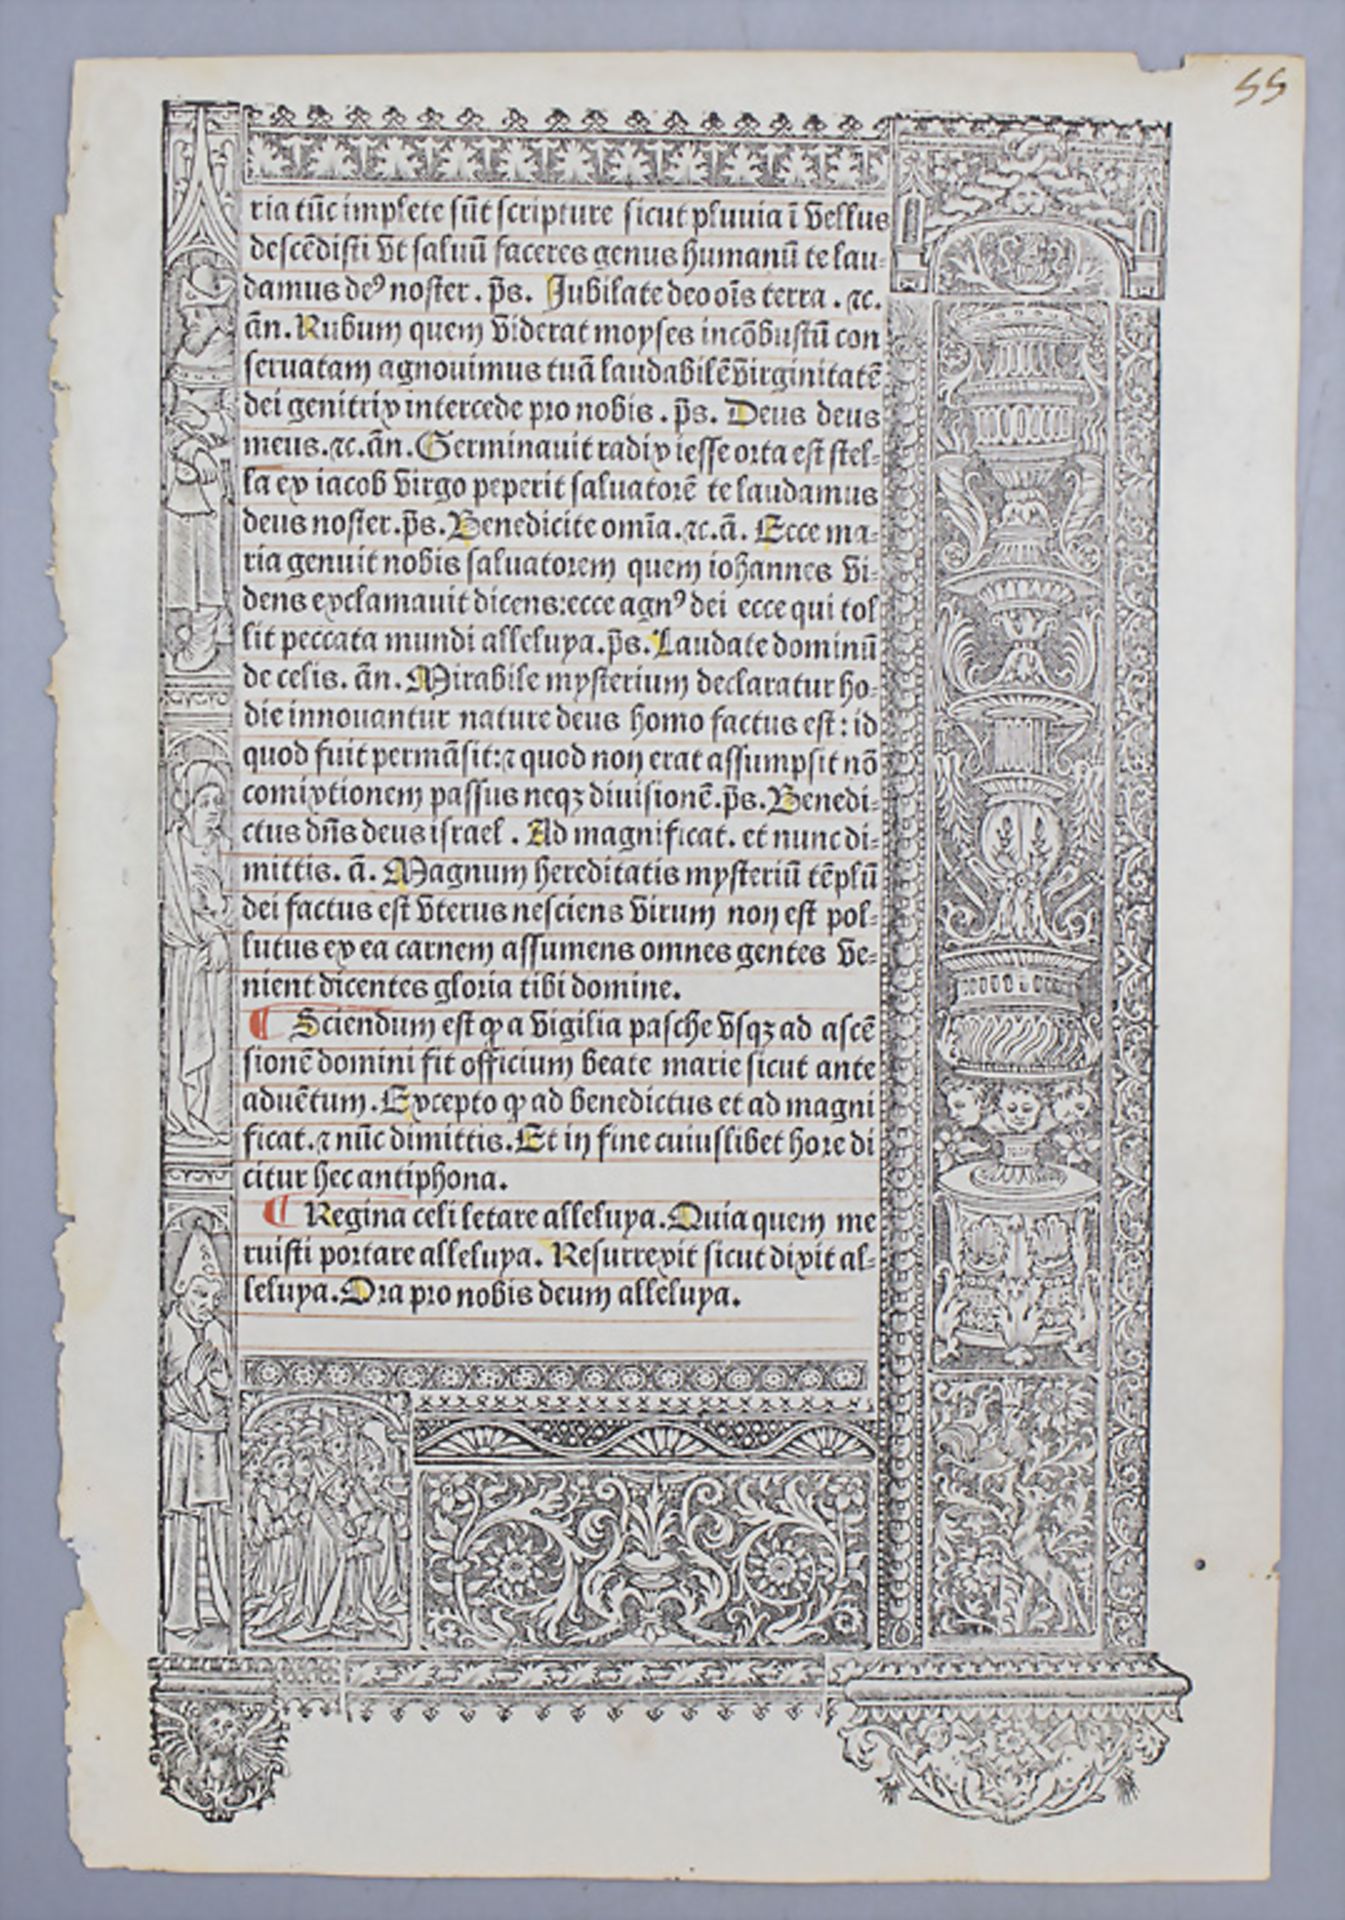 55
ria tūc implete sūt scripture sicut pluuia ī vellus
descēdisti vt saluū faceres genus humanū te lau-
damus deꝰ noster . p̄s. Jubilate deo oīs terra . ⁊c.
ān. Rubum quem viderat moyses incōbustū con
seruatam agnouimus tuā laudabilē virginitatē
dei genitrix intercede pro nobis . p̄s. Deus deus
meus. ⁊c. ān. Germinauit radix iesse orta est stel-
la ex iacob virgo peperit saluatorē te laudamus
deus noster. p̄s. Benedicite om̄ia. ⁊c. ā. Ecce ma-
ria genuit nobis saluatorem quem iohannes vi-
dens exclamauit dicens: ecce agnꝰ dei ecce qui tol
lit peccata mundi alleluya. p̄s. Laudate dominū
de celis. ān. Mirabile mysterium declaratur ho-
die innouantur nature deus homo factus est: id
quod fuit permāsit: ⁊ quod non erat assumpsit nō
comixtionem passus neqꝫ diuisionē. p̄s. Benedi-
ctus dn̄s deus israel . Ad magnificat. et nunc di-
mittis. ā. Magnum hereditatis mysteriū tēplū
dei factus est vterus nesciens virum non est pol-
lutus ex ea carnem assumens omnes gentes ve-
nient dicentes gloria tibi domine.
¶ Sciendum est ꝙ a vigilia pasche vsqꝫ ad ascē
sionē domini fit officium beate marie sicut ante
aduētum. Excepto ꝙ ad benedictus et ad magni
ficat. ⁊ nūc dimittis. Et in fine cuiuslibet hore di
citur hec antiphona.
¶ Regina celi letare alleluya. Quia quem me
ruisti portare alleluya. Resurrexit sicut dixit al-
leluya. Ora pro nobis deum alleluya.